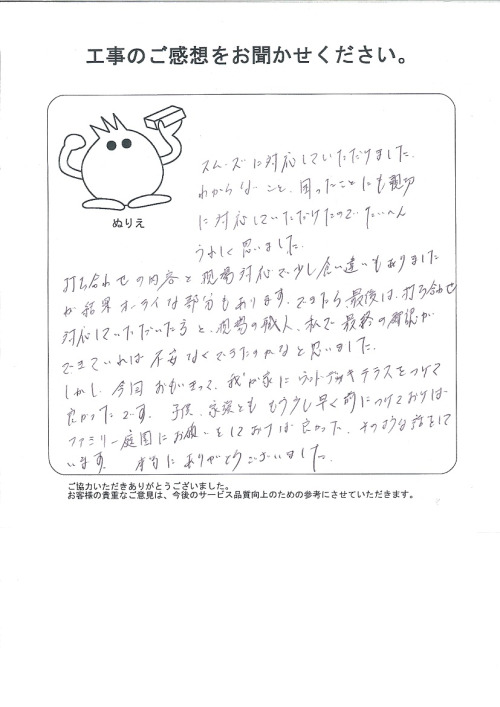 工事のご感想をお聞かせください。
ぬりえ
スムーズに対応していただけました。
わからないこと、困ったことにも親切
に対応していただけたのでたいへん
うれしく思いました。
打ち合わせの内容と現場対応で少し食い違いもありました
が結果オーライな部分もあります。できたら、最後は、打ち合わせ
対応していただいた方と、現場の職人、私で最終の確認が
できていれば不安なくできたのかなと思いました。
しかし、今回おもいきって、我が家にウッドデッキテラスをつけて
良かったです。子供、家族とももう少し早く前につけておけば
ファミリー庭園にお願いをしておけば良かった、そのような話をして
います。本当にありがとうございました。
ご協力いただきありがとうございました。
お客様の貴重なご意見は、今後のサービス品質向上のための参考にさせていただきます。